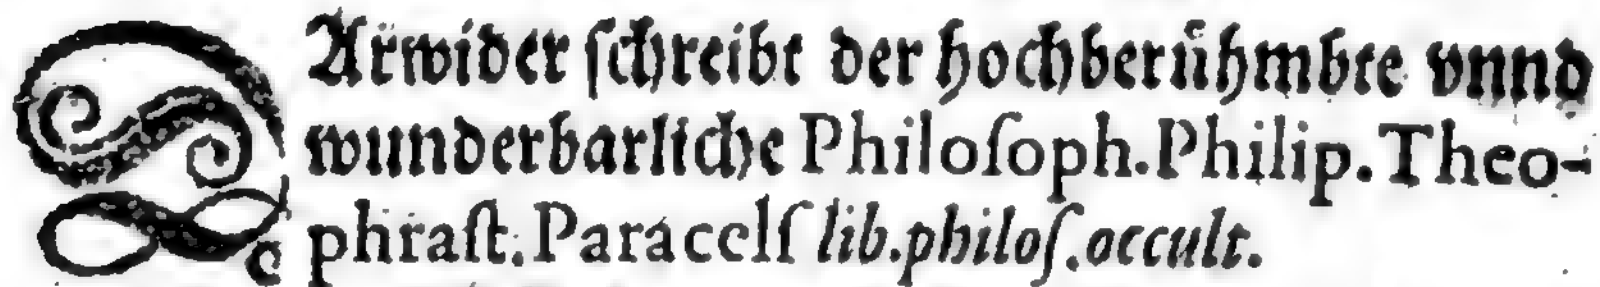 DArwider ſchreibt der hochberuͤhmbte vnnd
wunderbarliche Philoſoph. Philip. Theo-
phraſt. Paracelſ lib. philoſ. occult.